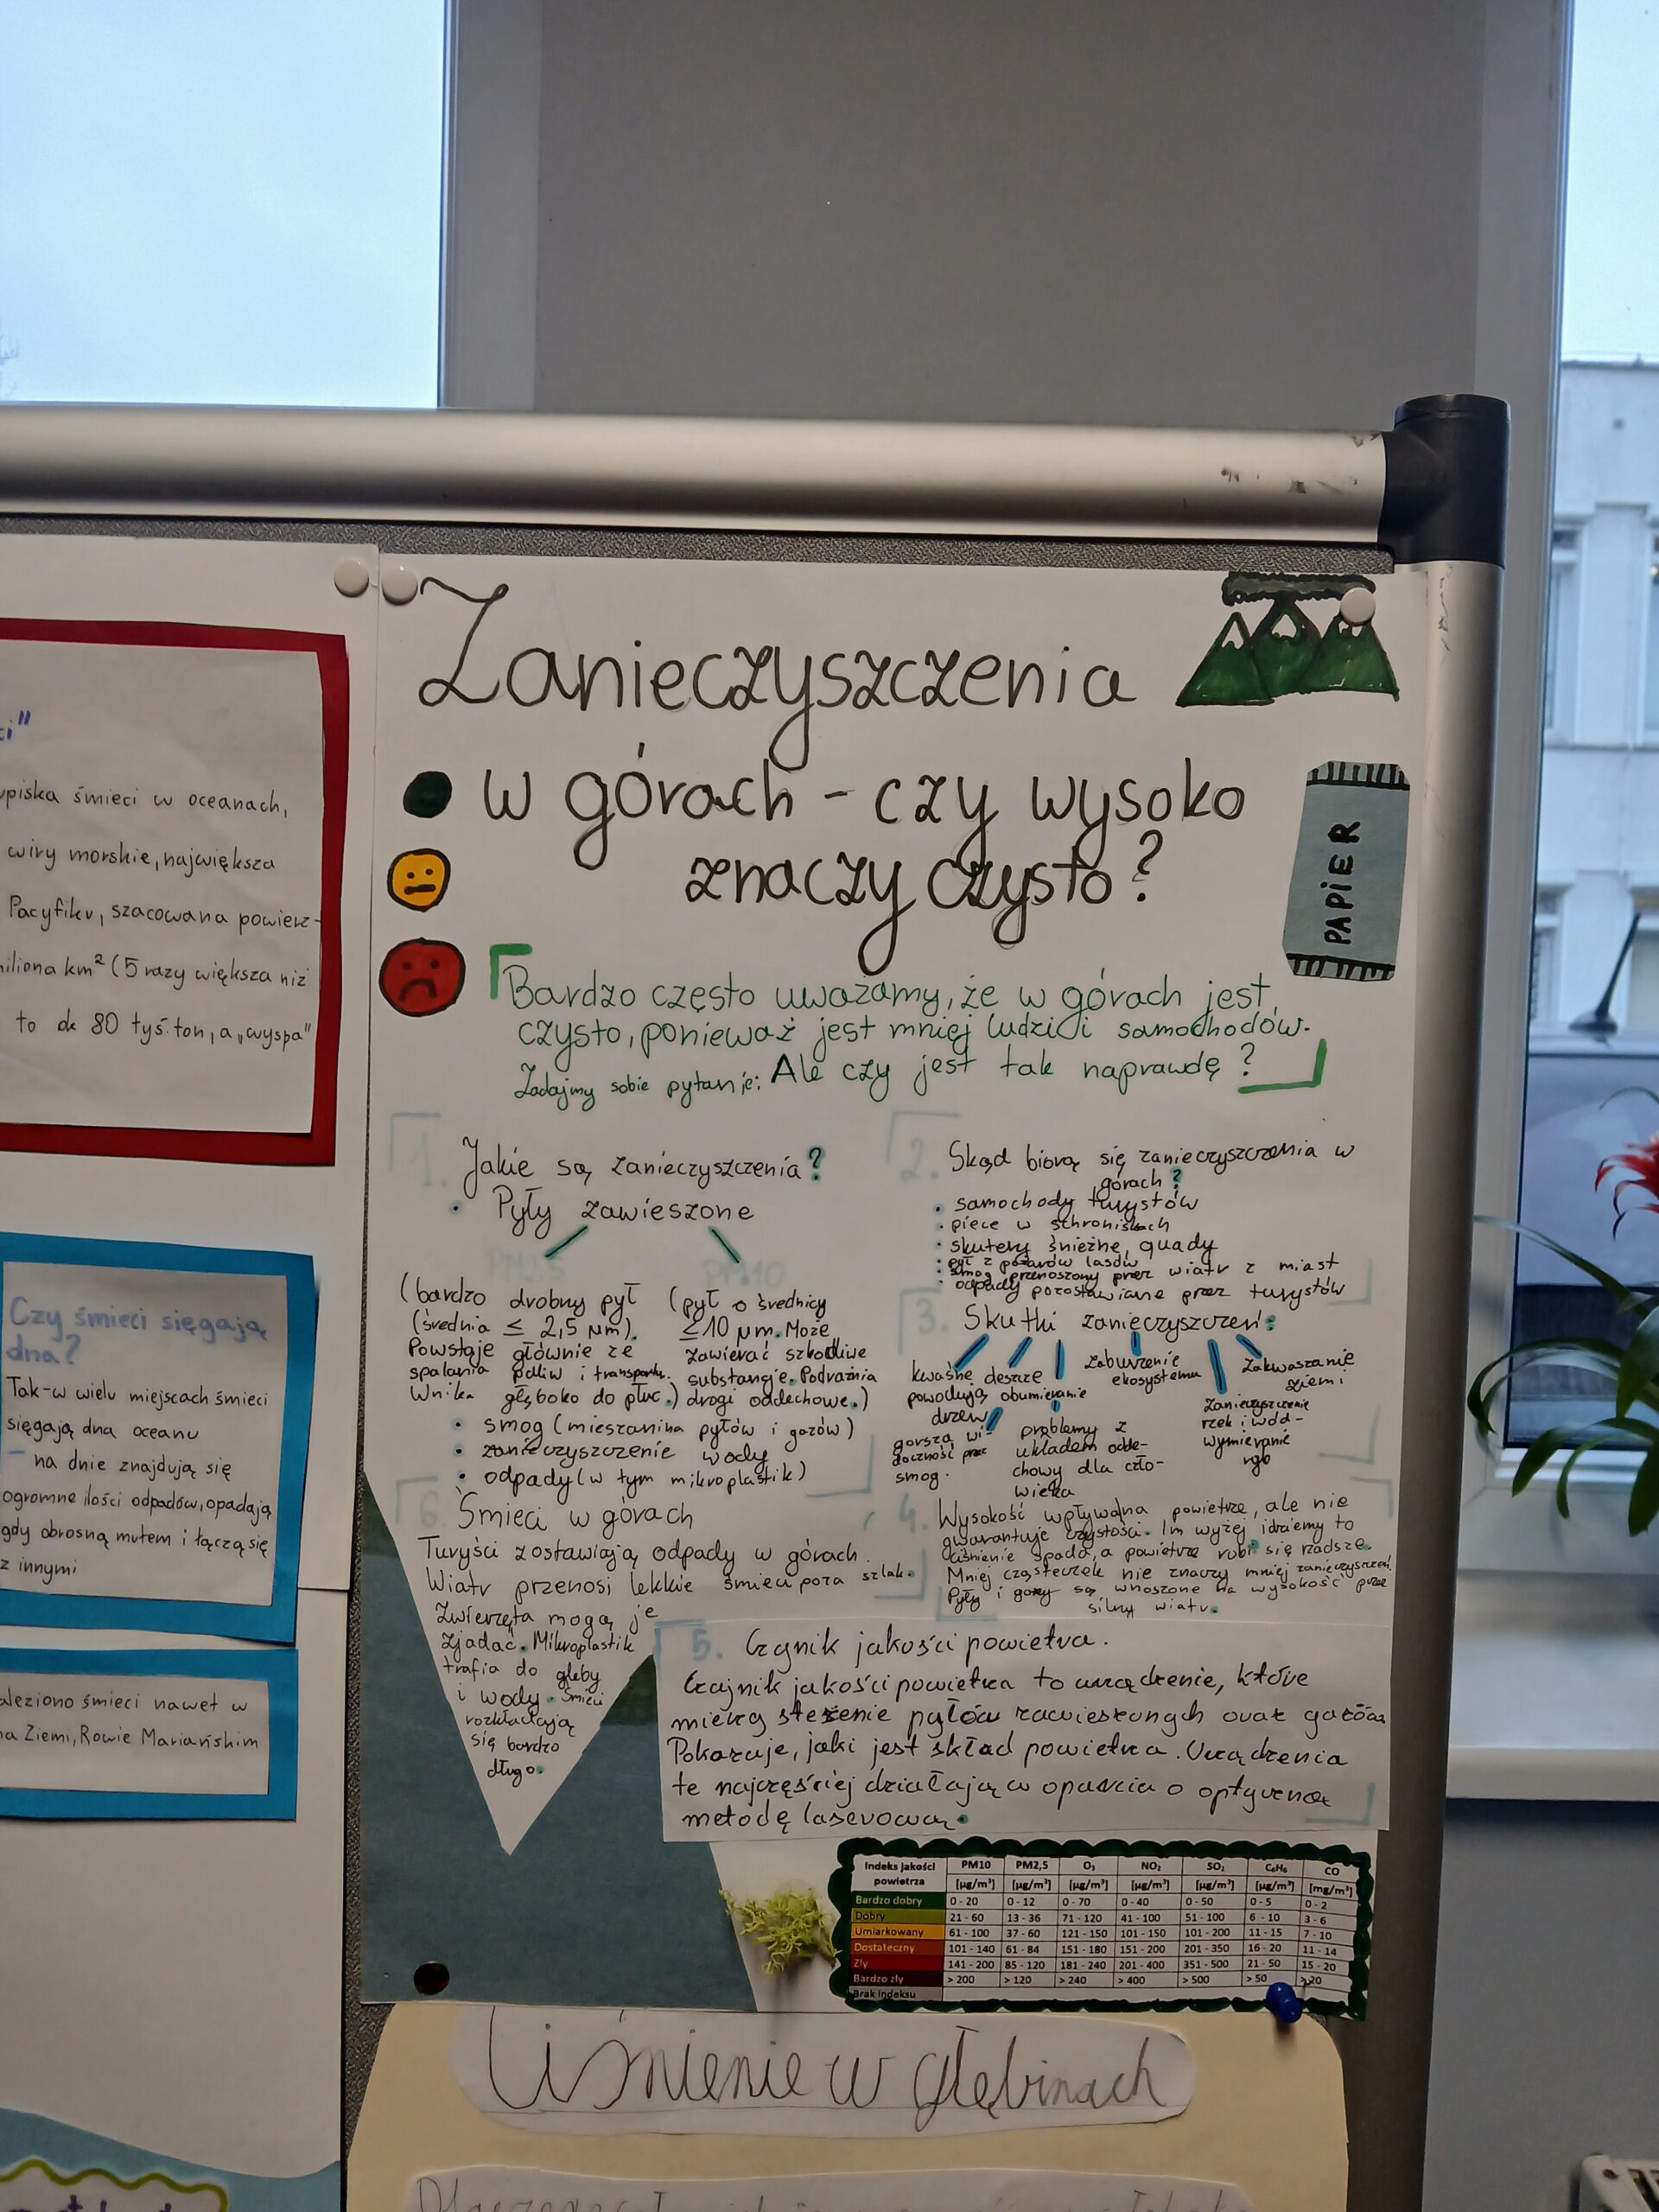 ci"
piska śmieci w oceanach,
wiry morskie, największa
Pacyfiku, szacowana powierz-
miliona km² (5 razy większa niż
to ok 80 tyś. ton, a „wyspa"
Czy śmieci sięgają
dna?
Tak-w wielu miejscach śmieci
sięgają dna oceanu
– na dnie znajdują się
ogromne ilości odpadów, opadają
gdy obrosną mułem i łączą się
z innymi
aleziono śmieci nawet w
na Ziemi, Rowie Mariańskim
Zanieczyszczenia
w górach - czy wysoko
znaczy czysto?
PAPIER
Bardzo często uważamy, że w górach jest
czysto, ponieważ jest mniej ludzi i samochodów.
Zadajmy sobie pytanie: Ale czy jest tak naprawdę?
1. Jakie są zanieczyszczenia?
• Pyły zawieszone
PM2,5 PM10
(bardzo drobny pył
(średnia ≤ 2,5 µm).
Powstaje głównie ze
spalania paliw i transportu.
Wnika głęboko do płuc.)
(pył o średnicy
≤10 µm. Może
zawierać szkodliwe
substancje. Podrażnia
drogi oddechowe.)
• smog (mieszanina pyłów i gazów)
• zanieczyszczenie wody
• odpady (w tym mikroplastik)
2. Skąd biorą się zanieczyszczenia w
górach?
• samochody turystów
• piece w schroniskach
• skutery śnieżne, quady
• pył z pożarów lasów
• smog przenoszony przez wiatr z miast
• odpady pozostawiane przez turystów
3. Skutki zanieczyszczeń:
kwaśne deszcze
powodują obumieranie
drzew
gorsza wi-
doczność przez
smog.
problemy z
układem odde-
chowy dla czło-
wieka
zaburzenie
ekosystemu
Zanieczyszczenie
rzek i wód -
wymieranie
ryb
Zakwaszanie
ziemi
4. Wysokość wpływa na powietrze, ale nie
gwarantuje czystości. Im wyżej idziemy to
ciśnienie spada, a powietrze robi się rzadsze.
Mniej cząsteczek nie znaczy mniej zanieczyszczeń.
Pyły i gazy są wnoszone na wysokość przez
silny wiatr.
5. Czujnik jakości powietrza.
Czujnik jakości powietrza to urządzenie, które
mierzy stężenie pyłów zawieszonych oraz gazów.
Pokazuje, jaki jest skład powietrza. Urządzenia
te najczęściej działają w oparciu o optyczną
metodę laserową.
6. Śmieci w górach
Turyści zostawiają odpady w górach.
Wiatr przenosi lekkie śmieci poza szlak.
Zwierzęta mogą je
zjadać. Mikroplastik
trafia do gleby
i wody. Śmieci
rozkładają
się bardzo
długo.
Indeks jakości powietrza PM10 [µg/m³] PM2,5 [µg/m³] O₃ [µg/m³] NO₂ [µg/m³] SO₂ [µg/m³] C₆H₆ [µg/m³] CO [mg/m³]
Bardzo dobry 0 - 20 0 - 12 0 - 70 0 - 40 0 - 50 0 - 5 0 - 2
Dobry 21 - 60 13 - 36 71 - 120 41 - 100 51 - 100 6 - 10 3 - 6
Umiarkowany 61 - 100 37 - 60 121 - 150 101 - 150 101 - 200 11 - 15 7 - 10
Dostateczny 101 - 140 61 - 84 151 - 180 151 - 200 201 - 350 16 - 20 11 - 14
Zły 141 - 200 85 - 120 181 - 240 201 - 400 351 - 500 21 - 50 15 - 20
Bardzo zły > 200 > 120 > 240 > 400 > 500 > 50 >20
Brak indeksu
Ciśnienie w głębinach